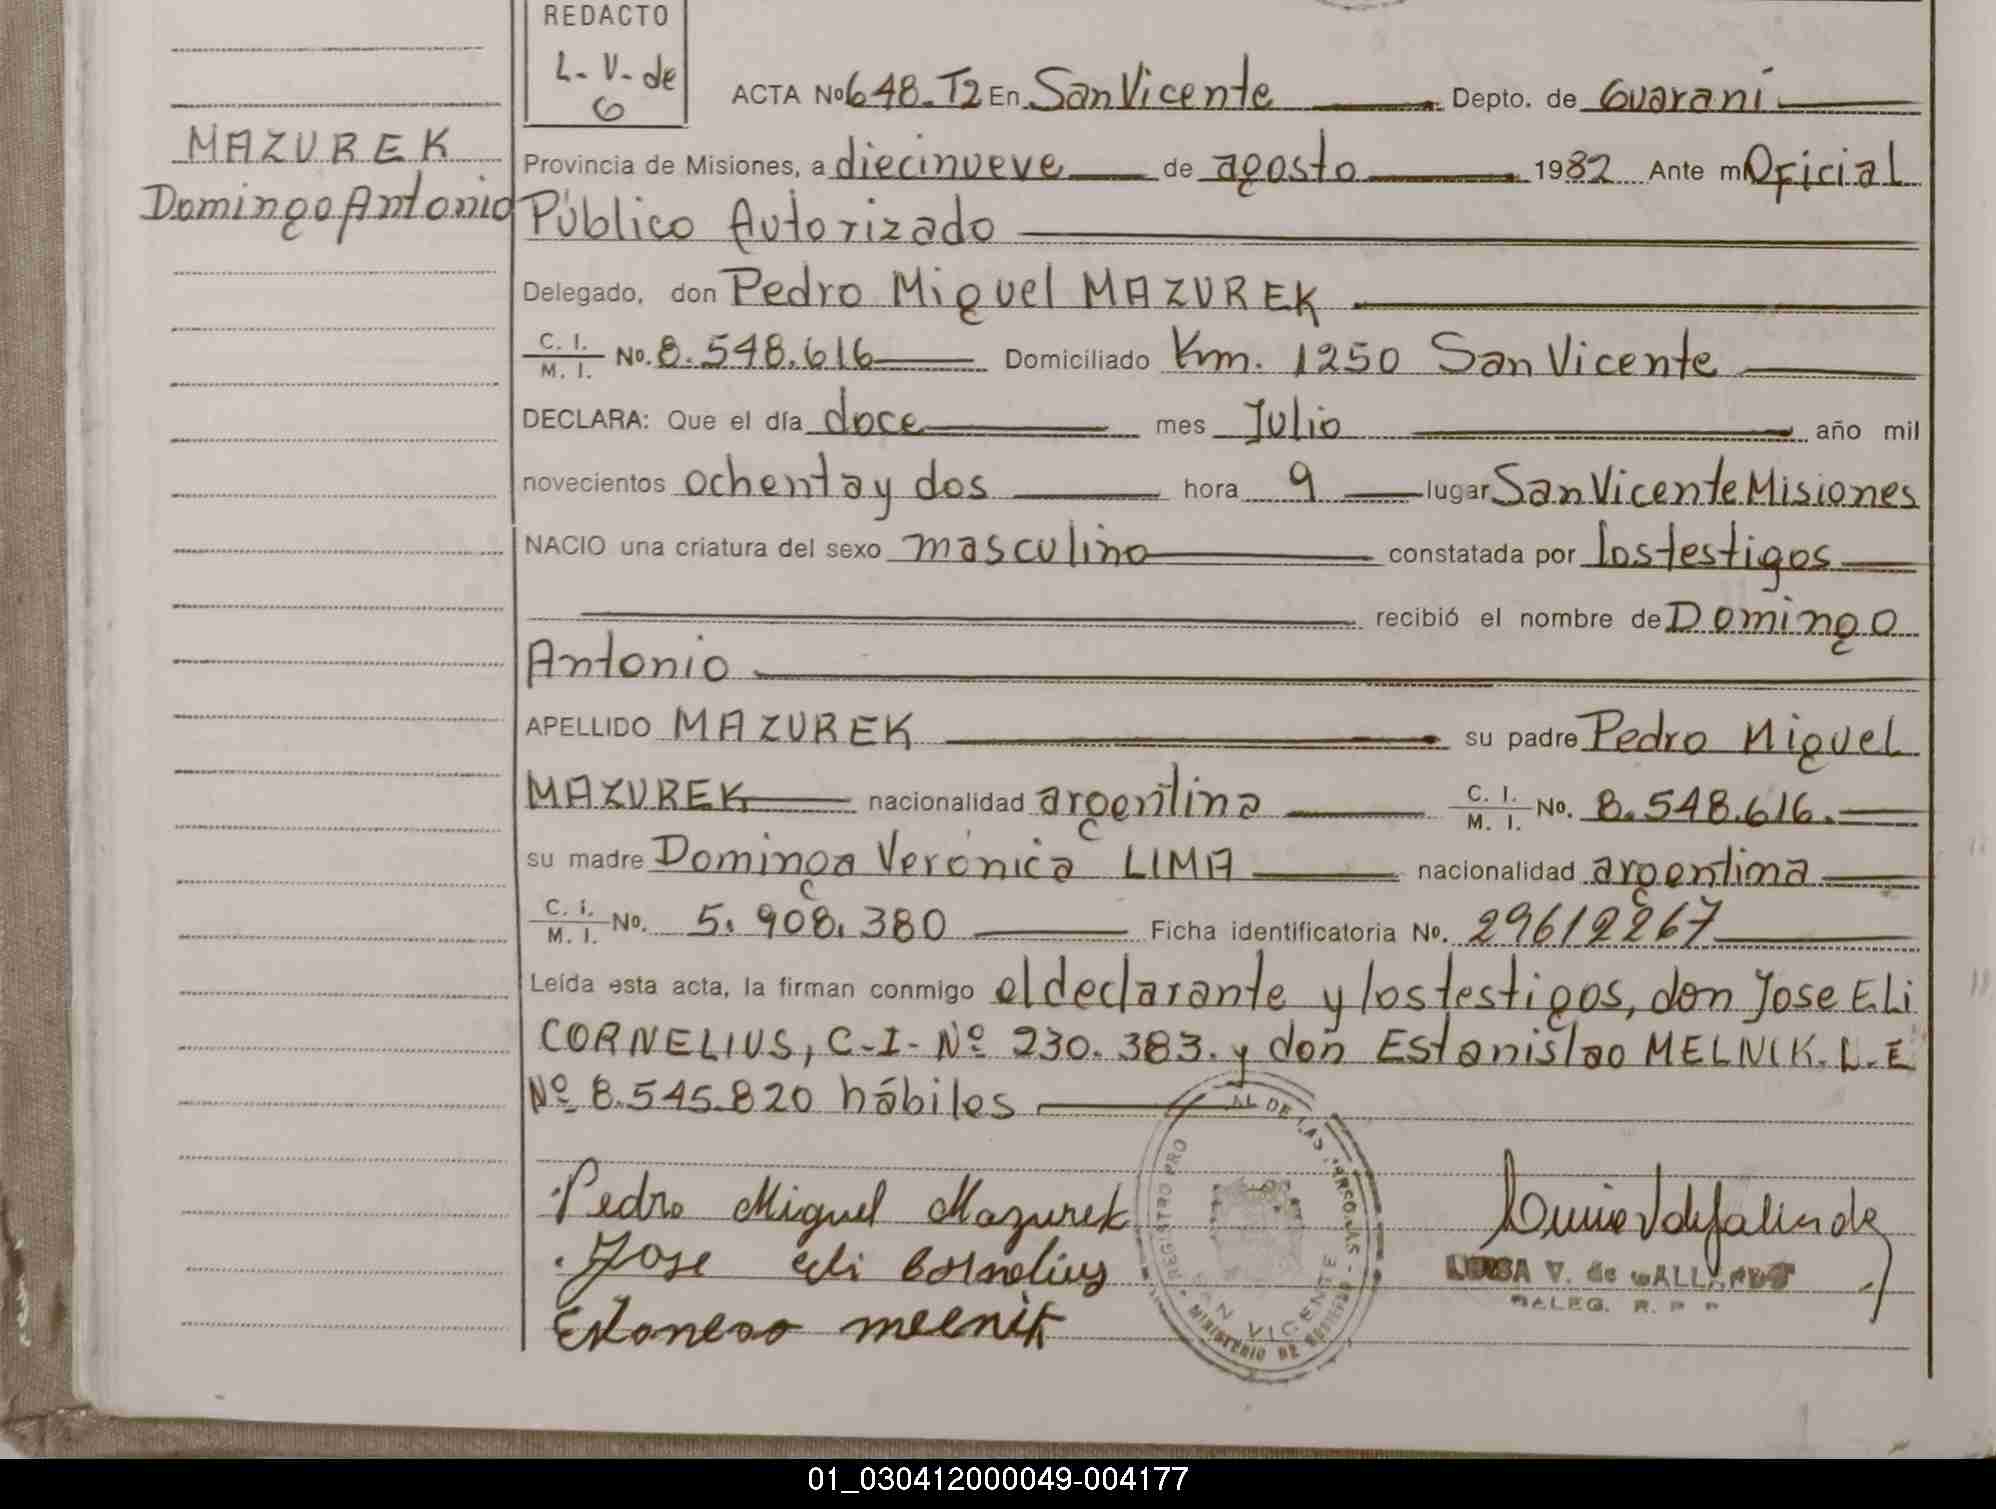 REDACTO
L. V. de
G
MAZUREK
Domingo Antonio
ACTA No 648. T2 En San Vicente Depto. de Guaraní
Provincia de Misiones, a diecinueve de agosto 1982 Ante m Oficial
Público Autorizado
Delegado, don Pedro Miguel MAZUREK
C. I. / M. I. No. 8.548.616 Domiciliado Km. 1250 San Vicente
DECLARA: Que el día doce mes Julio año mil
novecientos ochenta y dos hora 9 lugar San Vicente Misiones
NACIO una criatura del sexo masculino constatada por los testigos
recibió el nombre de Domingo
Antonio
APELLIDO MAZUREK su padre Pedro Miguel
MAZUREK nacionalidad argentina C. I. / M. I. No. 8.548.616.
su madre Dominga Verónica LIMA nacionalidad argentina
C. I. / M. I. No. 5.908.380 Ficha identificatoria No. 29612267
Leída esta acta, la firman conmigo el declarante y los testigos, don Jose Eli
CORNELIUS, C-I- Nº 230.383. y don Estanislao MELNIK. L.E
Nº 8.545.820 hábiles
Pedro Miguel Mazurek
Jose eli Cornelius
REGISTRO PRO AL DE LAS PERSONAS
SAN VICENTE
MINISTERIO DE
LUISA V. de GALLARDO
DELEG. R. P. P
01_030412000049-004177